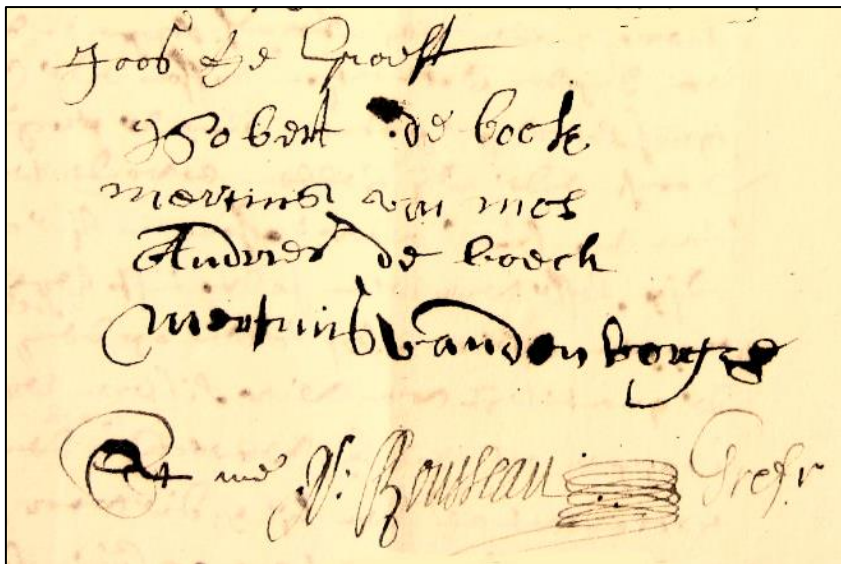 Joos de Groeft
Robert de boek
mertins van mol
Andries de boeck
Mertinis vanden borge
Et me N: Rousseau Grefr